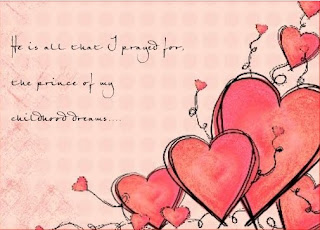 He is all that I prayed for,
the prince of my
childhood dreams....